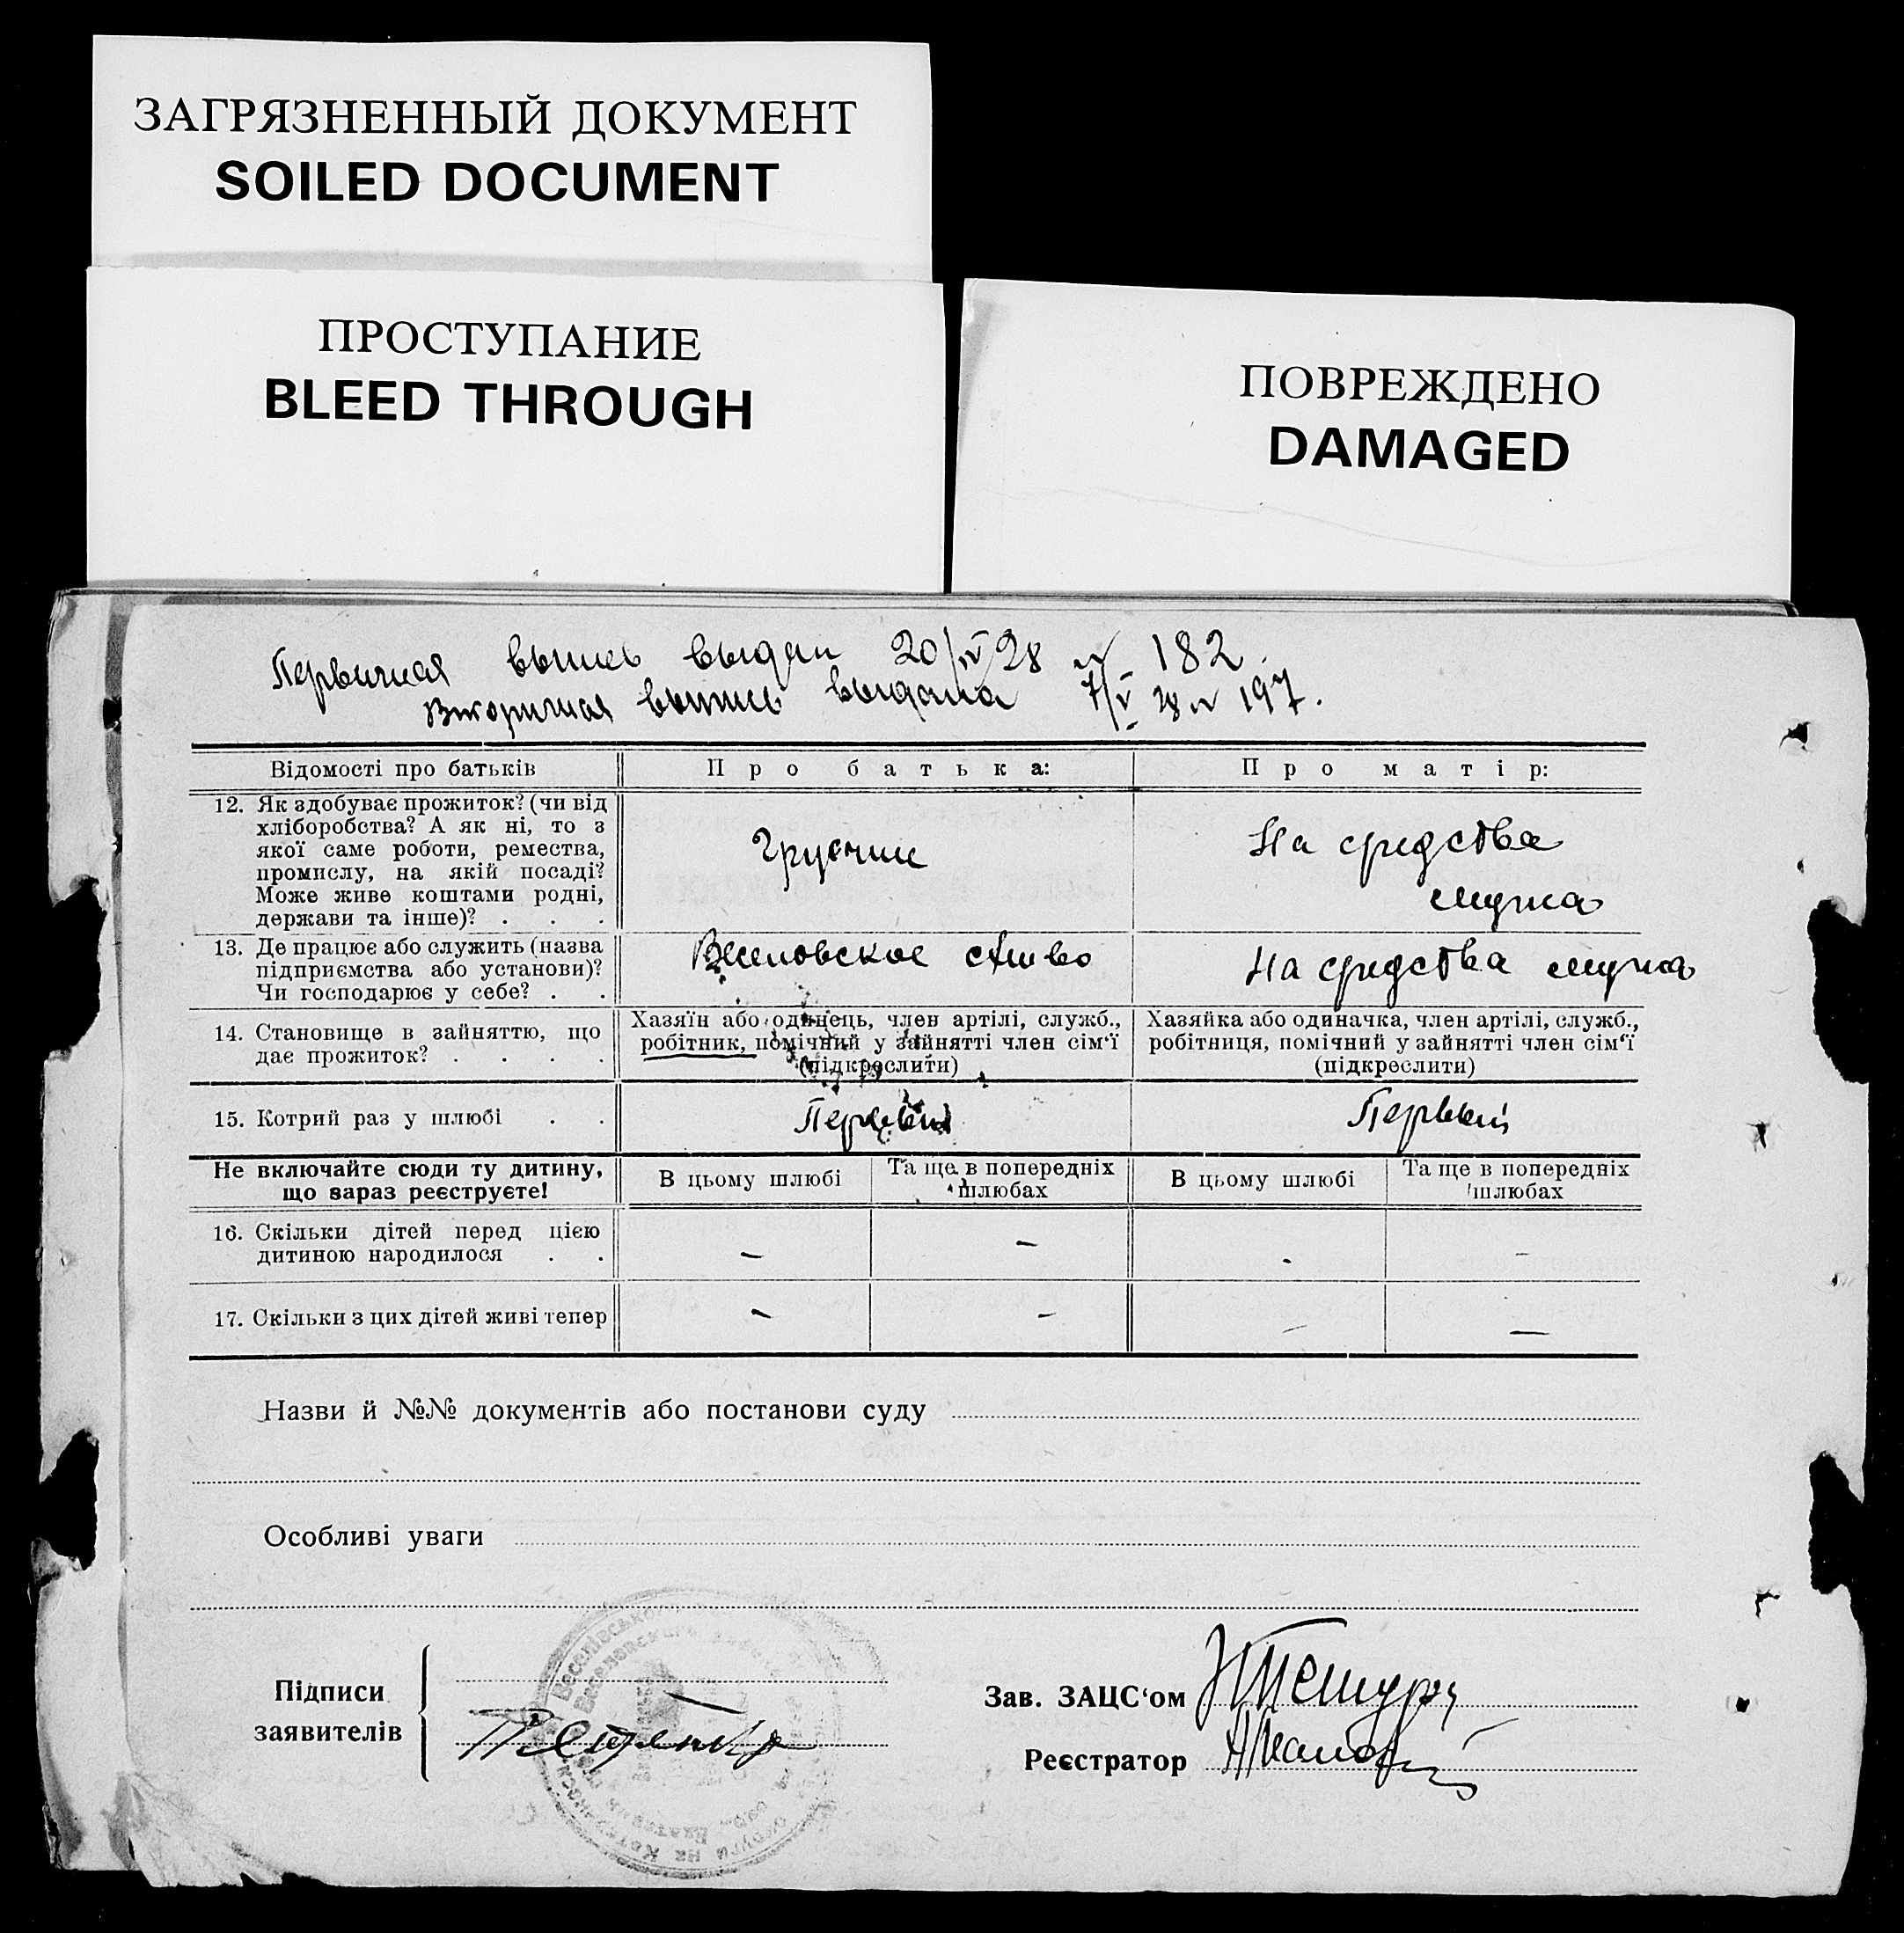 ЗАГРЯЗНЕННЫЙ ДОКУМЕНТ
SOILED DOCUMENT
ПРОСТУПАНИЕ
BLEED THROUGH
ПОВРЕЖДЕНО
DAMAGED
Первичная выпись выдан 20/IV 28 № 182.
Вторичная выпись выдана 7/V 28 № 197.
Відомості про батьків
Про батька:
Про матір:
12. Як здобуває прожиток? (чи від
хліборобства? А як ні, то з
якої саме роботи, ремества,
промислу, на якій посаді?
Може живе коштами родні,
держави та інше)? . . .
На средства
мужа
13. Де працює або служить (назва
підприємства або установи)?
Чи господарює у себе? . .
На средства мужа
14. Становище в зайняттю, що
дає прожиток? . . . .
Хазяїн або одинець, член артілі, служб.,
робітник, помічний у зайнятті член сім‘ї
(підкреслити)
Хазяйка або одиначка, член артілі, служб.,
робітниця, помічний у зайнятті член сім‘ї
(підкреслити)
15. Котрий раз у шлюбі . .
Первый
Первый
Не включайте сюди ту дитину,
що зараз реєструєте!
В цьому шлюбі
Та ще в попередніх
шлюбах
В цьому шлюбі
Та ще в попередніх
шлюбах
16. Скільки дітей перед цією
дитиною народилося . .
– – - –
17. Скільки з цих дітей живі тепер
– – – —
Назви й №№ документів або постанови суду
Особливі уваги
Підписи
заявителів
Зав. ЗАЦС‘ом
Реєстратор